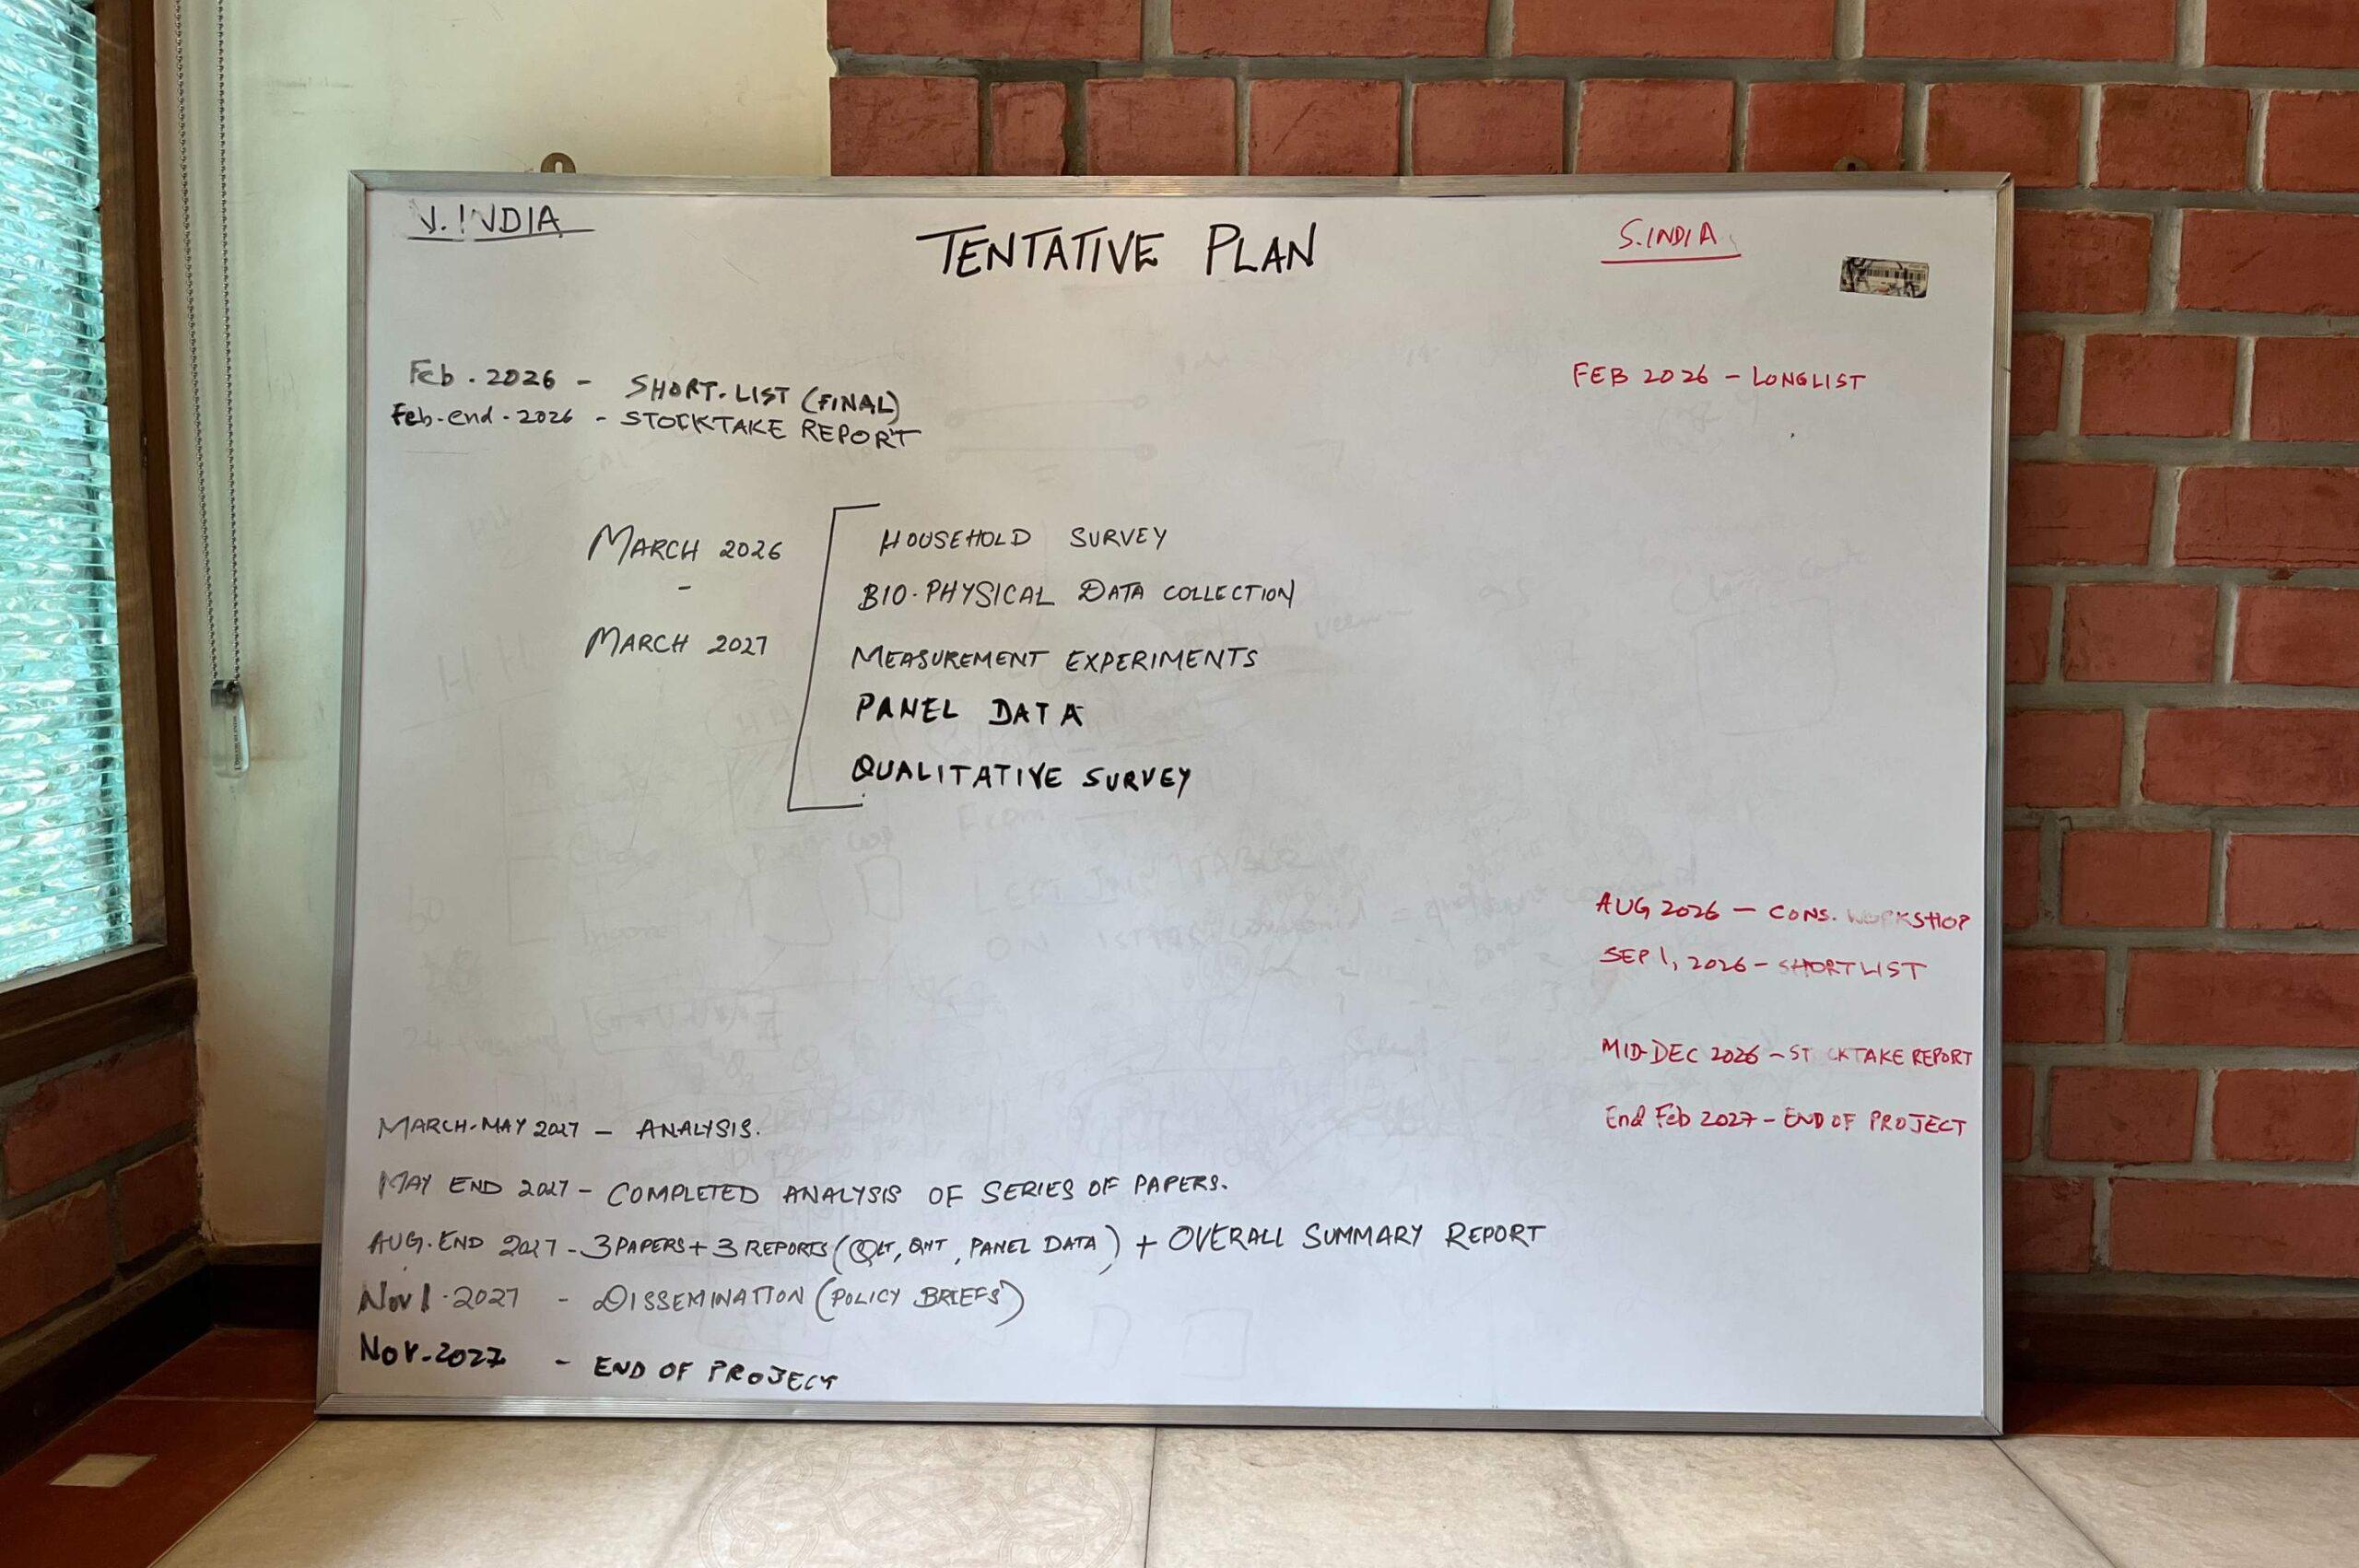 N. INDIA
TENTATIVE PLAN
S. INDIA
Feb . 2026 - SHORT-LIST (FINAL)
Feb-end - 2026 - STOCKTAKE REPORT
FEB 2026 - LONGLIST
MARCH 2026
-
MARCH 2027
HOUSEHOLD SURVEY
BIO-PHYSICAL DATA COLLECTION
MEASUREMENT EXPERIMENTS
PANEL DATA
QUALITATIVE SURVEY
AUG 2026 - CONS. WORKSHOP
SEP 1, 2026 - SHORTLIST
MID-DEC 2026 - STOCKTAKE REPORT
End Feb 2027 - END OF PROJECT
MARCH-MAY 2027 - ANALYSIS.
MAY END 2027 - COMPLETED ANALYSIS OF SERIES OF PAPERS.
AUG. END 2027 - 3 PAPERS + 3 REPORTS (QLT, QNT, PANEL DATA) + OVERALL SUMMARY REPORT
Nov 1 - 2027 - DISSEMINATION (POLICY BRIEFS)
Nov-2027 - END OF PROJECT